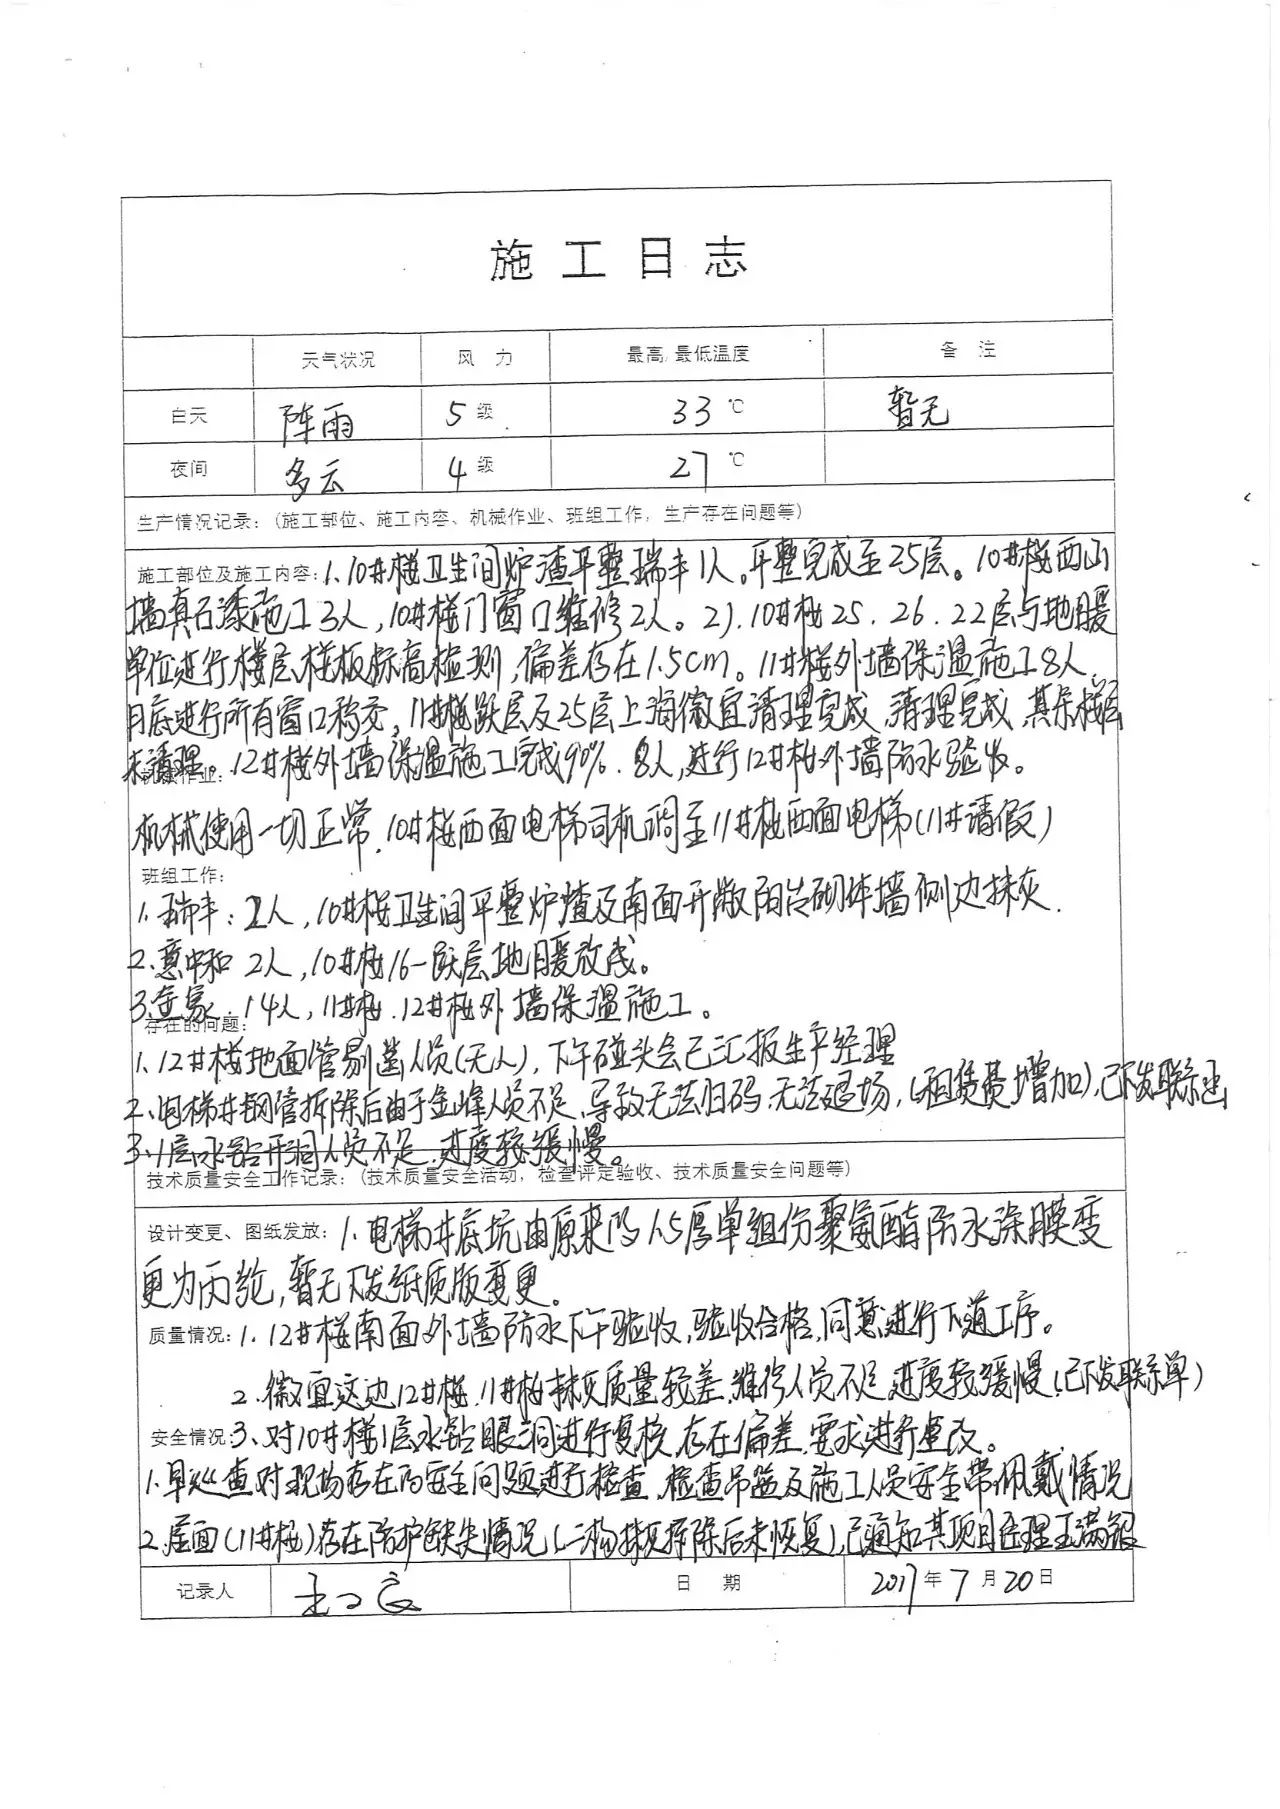 施工日志
天气状况 风力 最高/最低温度 备注
白天 阵雨 5级 33℃ 暂无
夜间 多云 4级 27℃
生产情况记录:(施工部位、施工内容、机械作业、班组工作,生产存在问题等)
施工部位及施工内容:1、10#楼卫生间炉渣平整瑞丰1人。平整完成至25层。10#楼西山
墙真石漆施工3人,10#楼门窗口维修2人。2).10#楼25、26、22层与地暖
单位进行楼层、楼板标高检测,偏差存在1.5cm。11#楼外墙保温施工8人、
月底进行所有窗口移交,11#楼跃层及25层上海徽宜清理完成、清理完成、其余楼层
未清理。12#楼外墙保温施工完成90%.8人,进行12#楼外墙防水验收。
机械作业:
机械使用一切正常.10#楼西面电梯司机调至11#楼西面电梯(11#请假)
班组工作:
1.瑞丰:2人,10#楼卫生间平整炉渣及南面开敞阳台砌体墙侧边抹灰.
2.意中和 2人,10#楼16-跃层地暖放线。
3.金家.14人,11#楼.12#楼外墙保温施工。
存在的问题:
1.12#楼地面管剔凿人员(无人),下午碰头会已汇报生产经理
2.电梯井钢管拆除后由于金峰人员不足、导致无法归码.无法退场,(租赁费增加),已下发联系函
3.11层水钻开洞人员不足.进度较缓慢。
技术质量安全工作记录:(技术质量安全活动,检查评定验收、技术质量安全问题等)
设计变更、图纸发放:1.电梯井底坑由原来的1.5厚单组份聚氨酯防水涂膜变
更为丙纶,暂无下发纸质版变更。
质量情况:1.12#楼南面外墙防水下午验收,验收合格,同意进行下道工序。
2.徽宜这边12#楼、11#楼抹灰质量较差、维修人员不足、进度较缓慢(已下发联系单)
安全情况:3、对10#楼1层水钻眼洞进行复核,存在偏差.要求进行整改。
1.早巡查对现场存在的安全问题进行检查、检查吊篮及施工人员安全带佩戴情况
2.屋面(11#楼)存在防护缺失情况(二构抹灰拆除后未恢复),已通知其项目经理王满银
记录人 日期 2017年7月20日